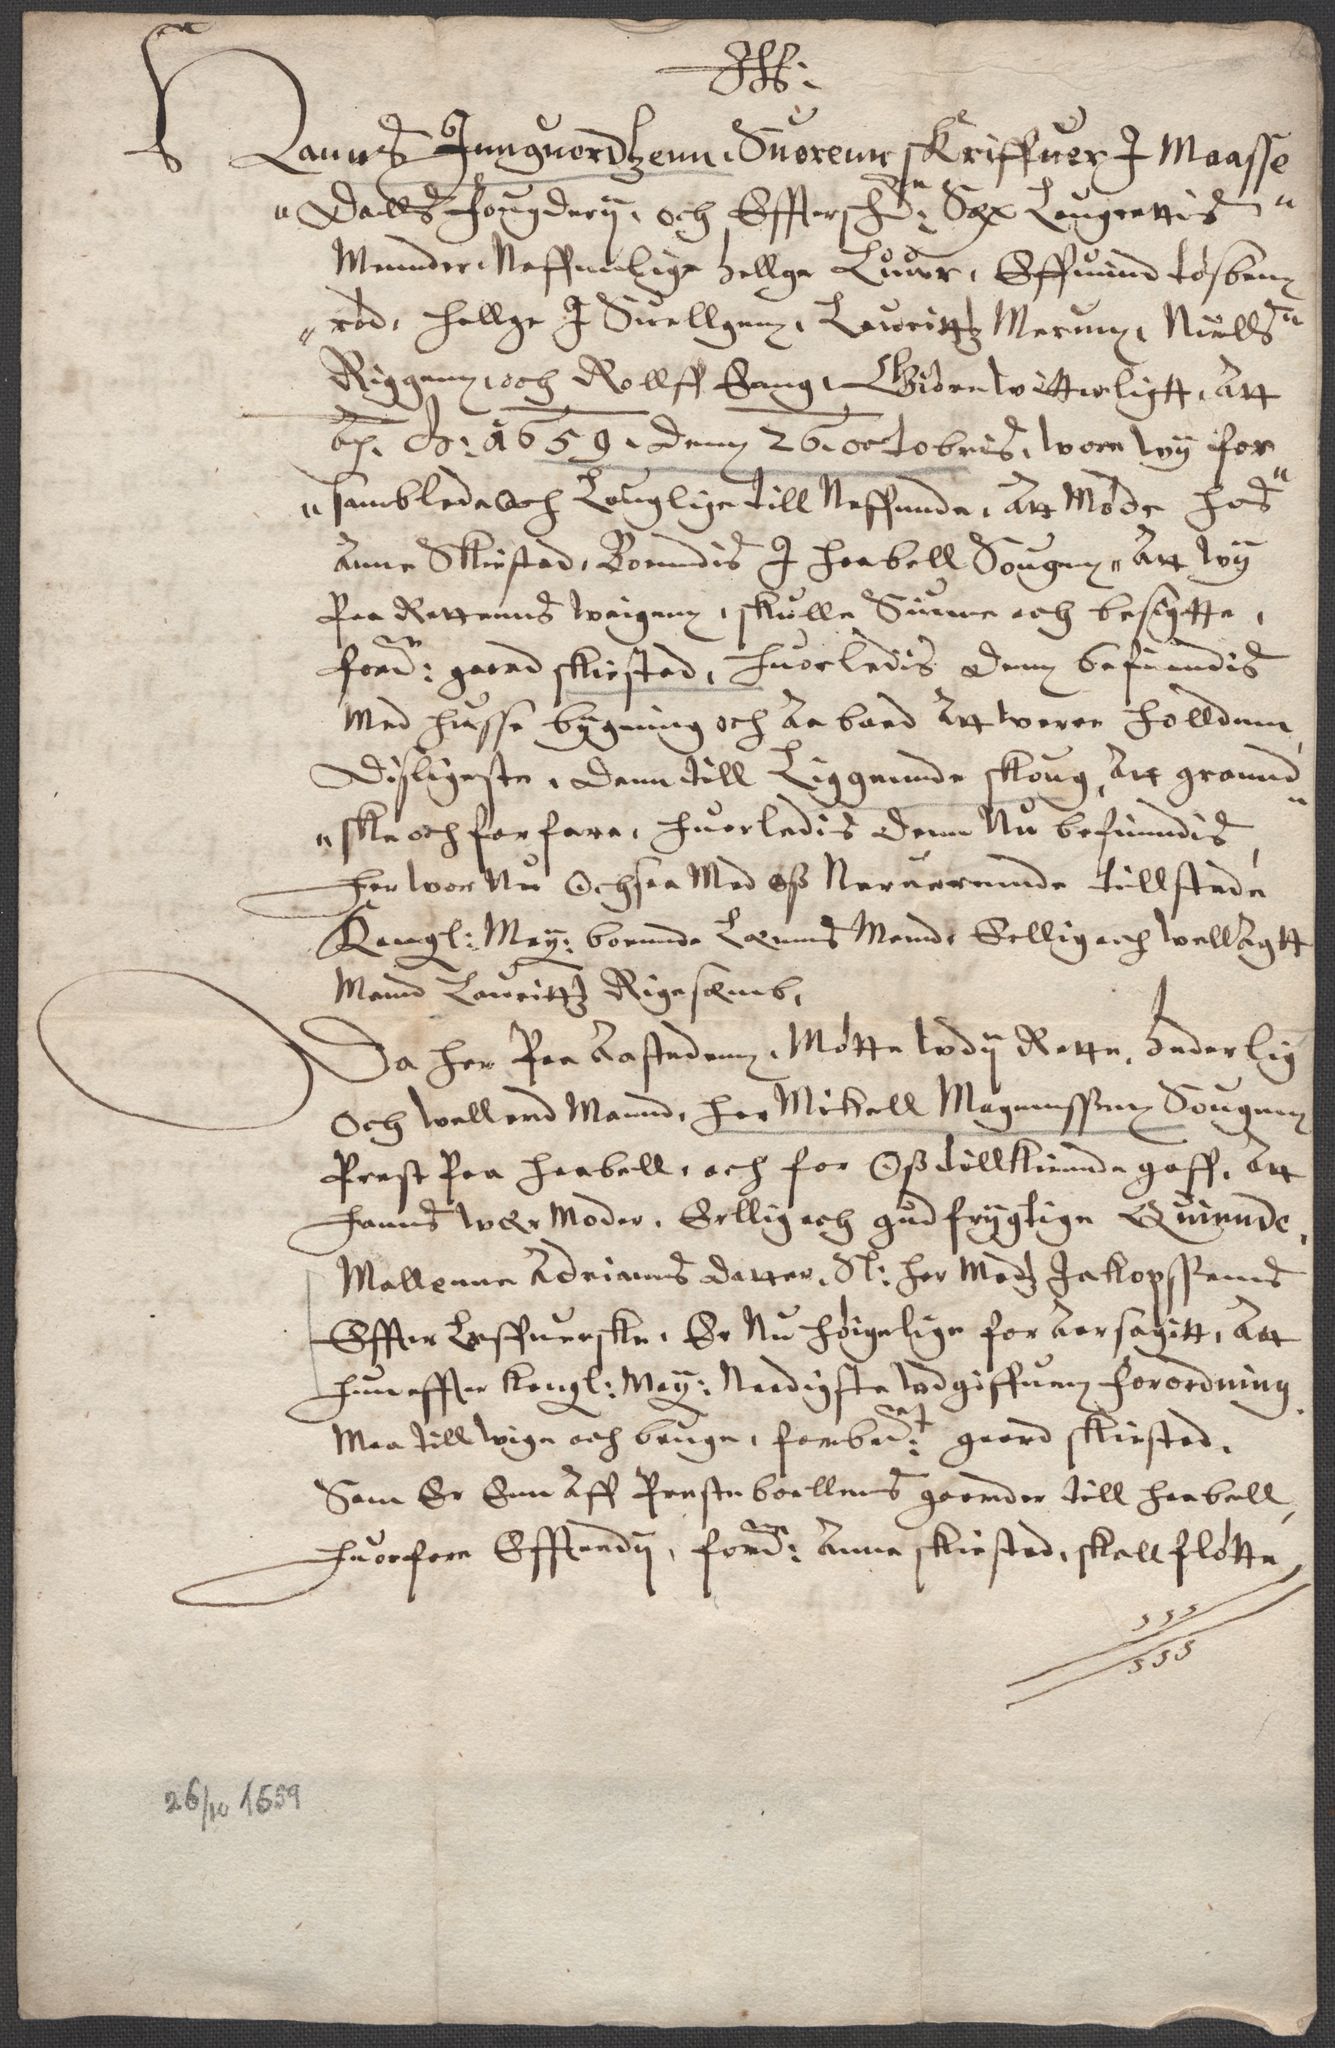 Jhs:
Hanns Inguordtzenn, Suorenn skriffuer J Maasse
dalls fougderij, och Effterschne: Sex Laugrettis
Mennder, Neffnnlige Hellge Luur, Effuind tosben
rød, Hellge J Suellgen, Lauritz Merum, Niells
Riggen, och Rollff Sang, Giøre witterligtt, Att
Ao. dj: 1659, denn 26. octobris, wore wij for
samblede och Lauglige till Neffnnde, Att Møde hos
Anne Skiestad, Boenndis J Haabell Sougen, Att wij
Paa Rettenns weigen, skulle Siune och besigtte,
fornde: gaard skiestad, huorledis denn befindis
Med husse bygning och Aaboed Att were holldenn,
disligeste, denn till Liggennde skoug, Att grannd
ske och forfare, huorledis denn Nu befinndis,
Her wor Nu Ochsaa Med oss Neruerennde tillstede
Kongl: May: boennde Lænns Mand, Erllig och wellAgtt
Mannd Lauritz Rigesæmb,
Da her Paa Aasteden, Møtte wdj Rette, hederlig
och wellerd Mannd, her Mikell Magenussen Sougen
Prest Paa Haabell, och for Oss tillkiennde gaff, Att
hanns wær Moder, Erllig och gudfrygtige Quinnde,
Mallenne Adrianns datter, Sl: her Madz Jakopssenns
Effter Leffuerske, Er Nu høigelige for Aarsagitt, Att
hun effter Kongl: May: Naadigste wdgiffuen forordning
Maa till wige och bruge, forbert: gaard skiestad,
Som Er Enn Aff Prestebollenns gaarder till Haabell,
huorfore Efftterdij, fornde: Anne skiestad, skall fløtte
26/10 1659